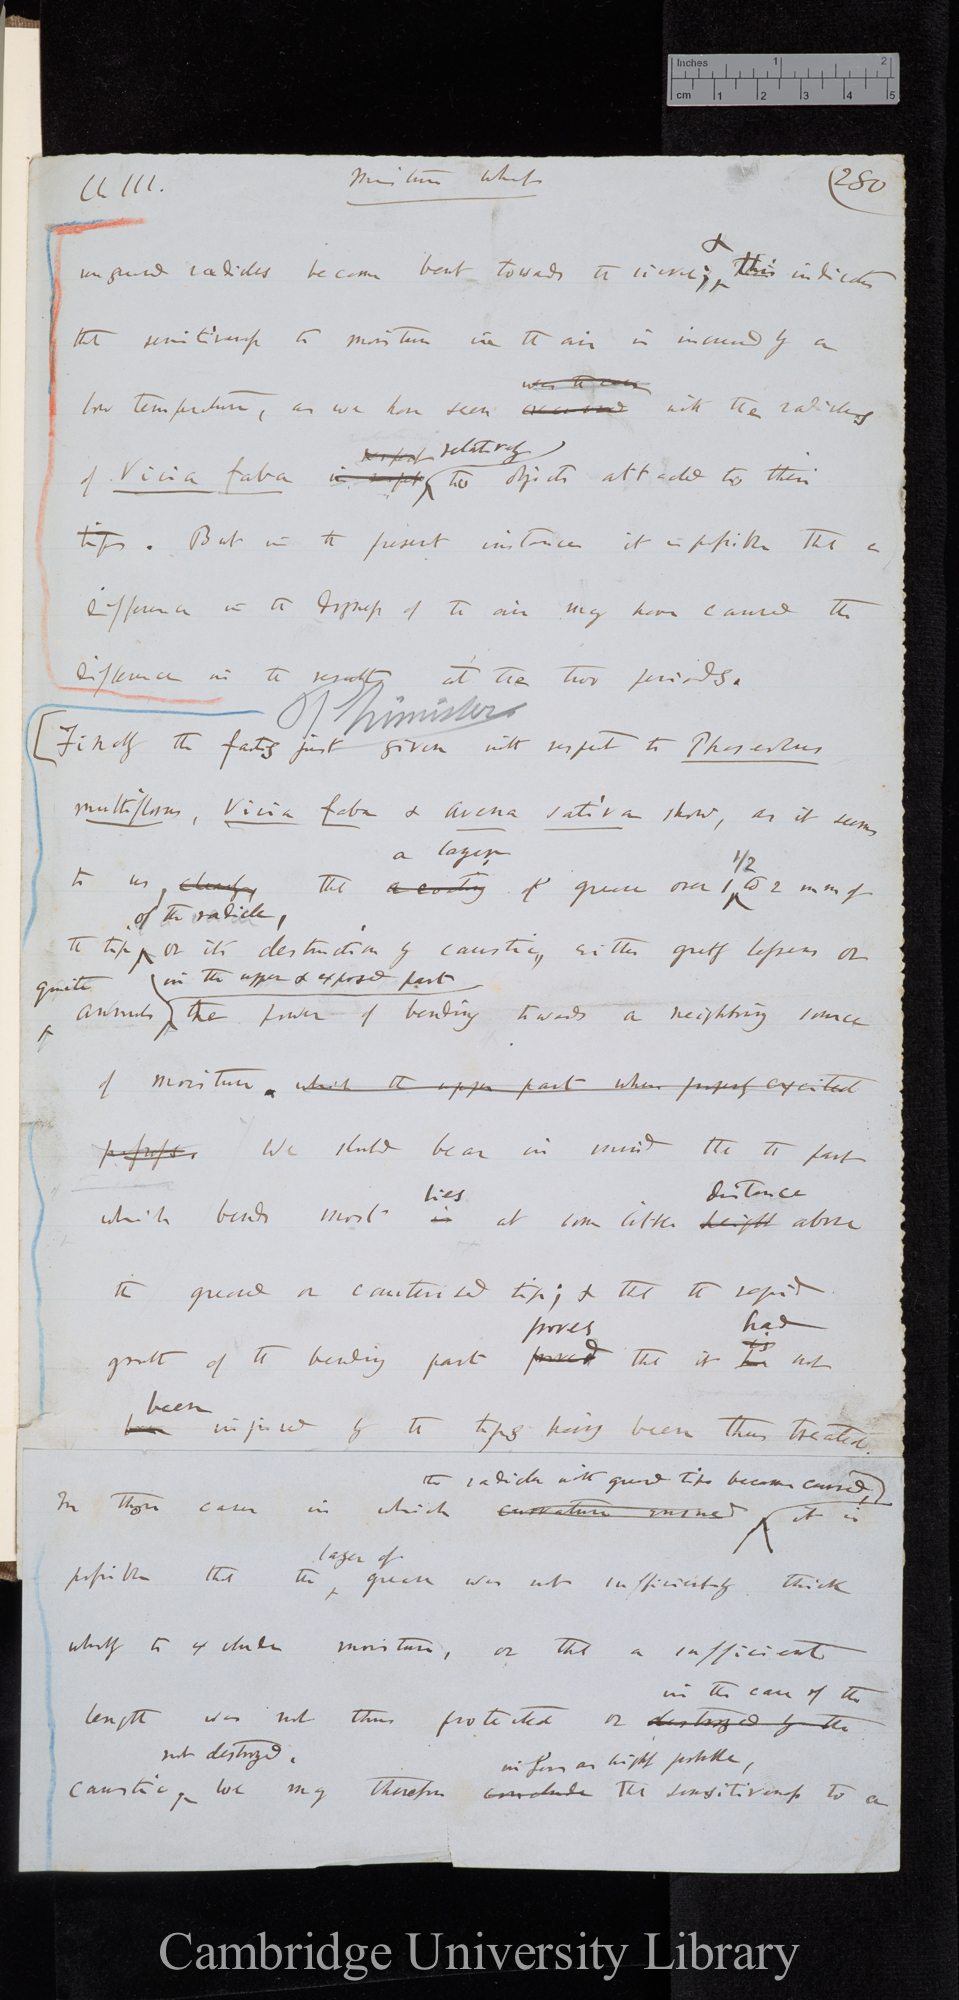 Inches 1 2
cm 1 2 3 4 5
Ch III.
Moisture whole
(280
&
ungreased radicles became bent towards the sieve; this indicates
that sensitiveness to moisture in the air is increased by a
was the case
low temperature, as we have seen with the radicles
respect relatively
of Vicia faba in respect to objects attached to their
tips. But in the present instance it is possible that a
difference in the dryness of the air may have caused the
difference in the results at the two periods.
Finally the facts just given with respect to Phaseolus
multiflorus, Vicia faba & Avena sativa show, as it seems
a layer 1/2
to us, clearly, that a coating of grease over 1 to 2 mm of
of the radicle,
the tip, or its destruction by caustic, either greatly lessens or
quite in the upper & exposed part
annuls the power of bending towards a neighbouring source
of moisture. which the upper part when properly excited
possesses. We should bear in mind that the part
lies distance
which bends most is at some little height above
the greased or cauterised tip; & that the rapid
proves had
growth of the bending part proved that it is not
been
been injured by the tips having been thus treated.
the radicles with greased tips became curved,
In those cases in which curvature ensued it is
layer of
possible that the grease was not sufficiently thick
wholly to exclude moisture, or that a sufficient
in the case of the
length was not thus protected or destroyed by the
not destroyed.
caustic, we may therefore conclude the sensitiveness to a
Cambridge University Library